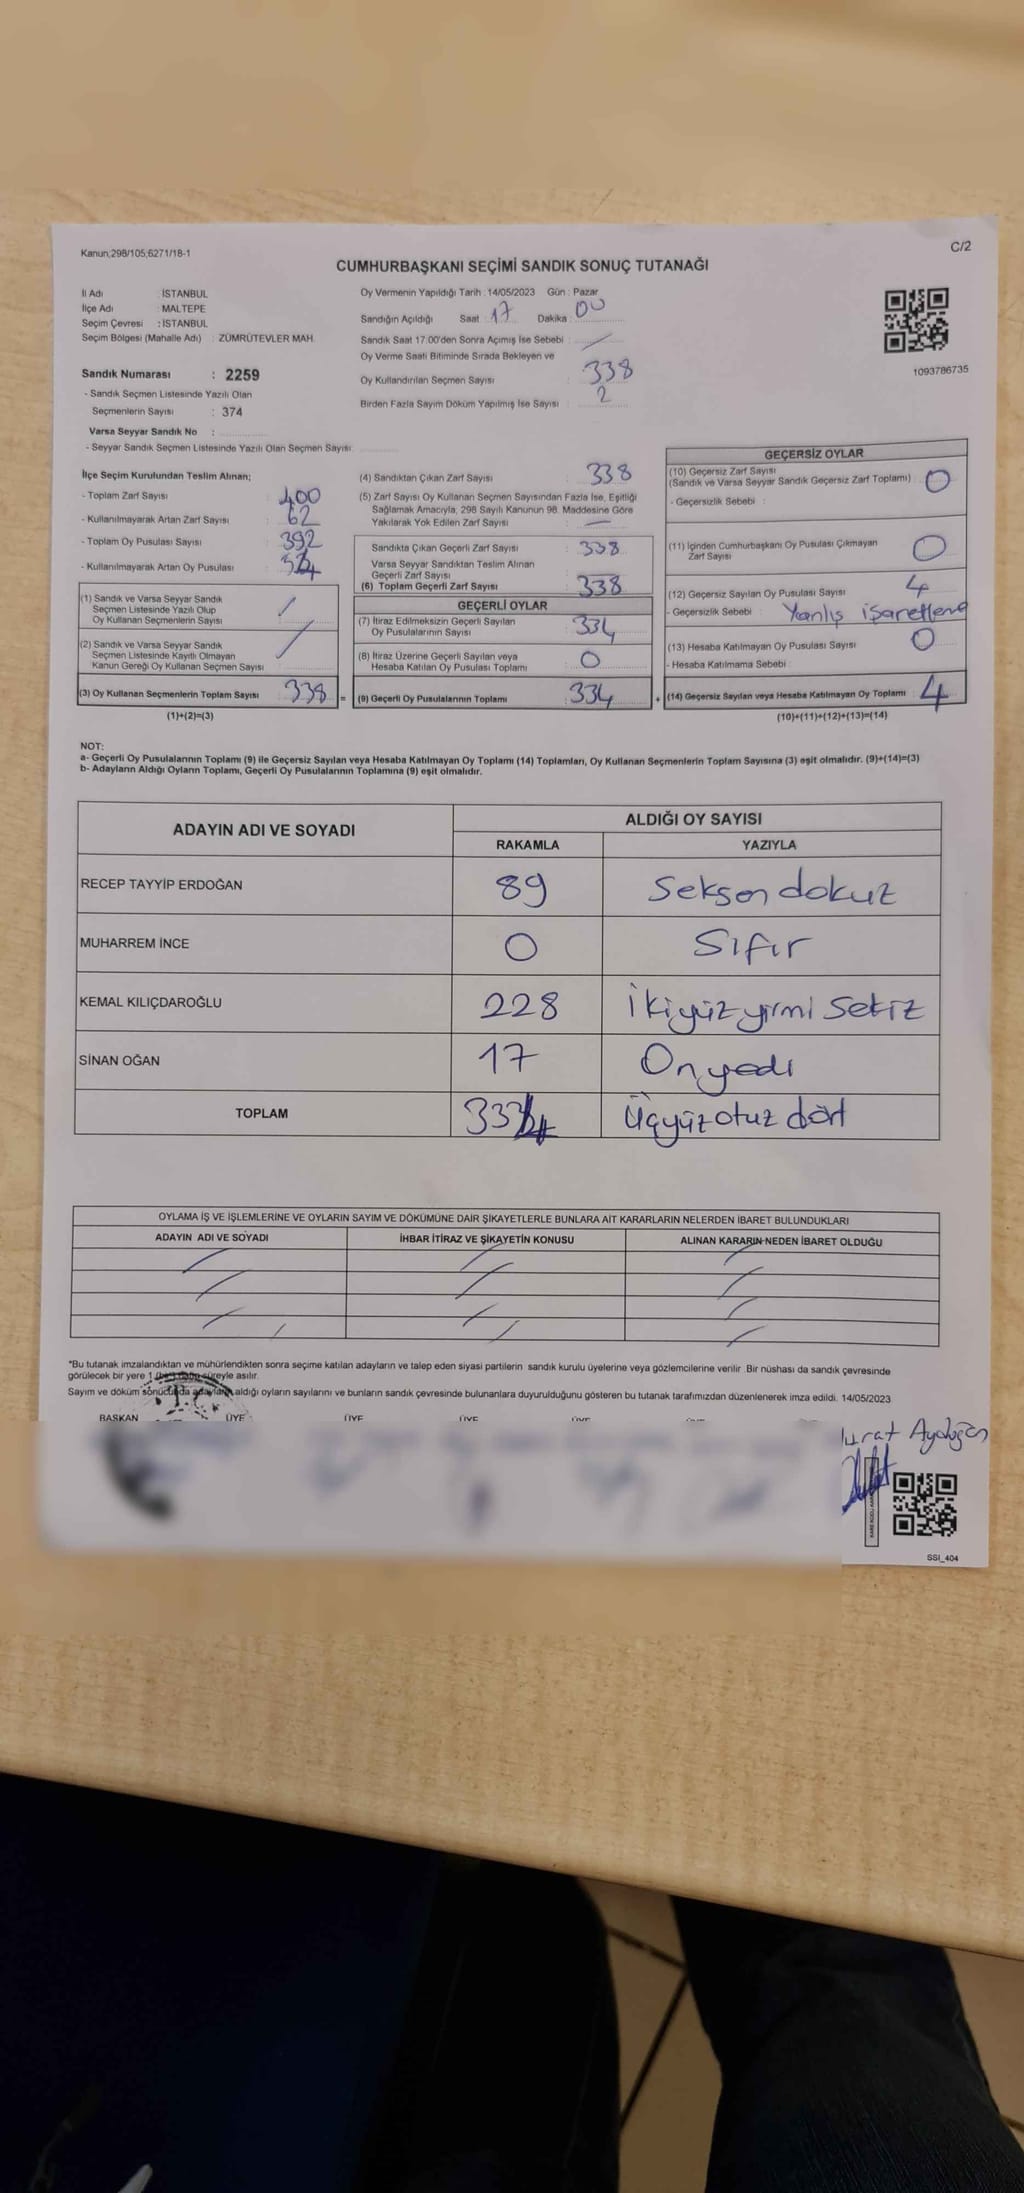 Kanun;298/105;6271/18-1
C/2
CUMHURBAŞKANI SEÇİMİ SANDIK SONUÇ TUTANAĞI
İl Adı : İSTANBUL
İlçe Adı : MALTEPE
Seçim Çevresi : İSTANBUL
Seçim Bölgesi (Mahalle Adı) : ZÜMRÜTEVLER MAH.
Sandık Numarası : 2259
- Sandık Seçmen Listesinde Yazılı Olan
Seçmenlerin Sayısı : 374
Varsa Seyyar Sandık No :
- Seyyar Sandık Seçmen Listesinde Yazılı Olan Seçmen Sayısı:
Oy Vermenin Yapıldığı Tarih : 14/05/2023 Gün : Pazar
Sandığın Açıldığı Saat : 17 Dakika : 00
Sandık Saat 17.00'den Sonra Açımış İse Sebebi :
Oy Verme Saati Bitiminde Sırada Bekleyen ve
Oy Kullandırılan Seçmen Sayısı : 338
Birden Fazla Sayım Döküm Yapılmış İse Sayısı : 2
1093786735
İlçe Seçim Kurulundan Teslim Alınan;
- Toplam Zarf Sayısı : 400
- Kullanılmayarak Artan Zarf Sayısı : 62
- Toplam Oy Pusulası Sayısı : 392
- Kullanılmayarak Artan Oy Pusulası :
(1) Sandık ve Varsa Seyyar Sandık
Seçmen Listesinde Yazılı Olup
Oy Kullanan Seçmenlerin Sayısı
(2) Sandık ve Varsa Seyyar Sandık
Seçmen Listesinde Kayıtlı Olmayan
Kanun Gereği Oy Kullanan Seçmen Sayısı
(3) Oy Kullanan Seçmenlerin Toplam Sayısı : 338 =
(1)+(2)=(3)
(4) Sandıktan Çıkan Zarf Sayısı : 338
(5) Zarf Sayısı Oy Kullanan Seçmen Sayısından Fazla İse, Eşitliği
Sağlamak Amacıyla, 298 Sayılı Kanunun 98. Maddesine Göre
Yakılarak Yok Edilen Zarf Sayısı :
Sandıkta Çıkan Geçerli Zarf Sayısı : 338
Varsa Seyyar Sandıktan Teslim Alınan
Geçerli Zarf Sayısı
(6) Toplam Geçerli Zarf Sayısı : 338
GEÇERLİ OYLAR
(7) İtiraz Edilmeksizin Geçerli Sayılan
Oy Pusulalarının Sayısı : 334
(8) İtiraz Üzerine Geçerli Sayılan veya
Hesaba Katılan Oy Pusulası Toplamı : 0
(9) Geçerli Oy Pusulalarının Toplamı : 334 +
GEÇERSİZ OYLAR
(10) Geçersiz Zarf Sayısı
(Sandık ve Varsa Seyyar Sandık Geçersiz Zarf Toplamı) : 0
- Geçersizlik Sebebi :
(11) İçinden Cumhurbaşkanı Oy Pusulası Çıkmayan
Zarf Sayısı : 0
(12) Geçersiz Sayılan Oy Pusulası Sayısı : 4
- Geçersizlik Sebebi : Yanlış işaretleme
(13) Hesaba Katılmayan Oy Pusulası Sayısı : 0
- Hesaba Katılmama Sebebi :
(14) Geçersiz Sayılan veya Hesaba Katılmayan Oy Toplamı : 4
(10)+(11)+(12)+(13)=(14)
NOT:
a- Geçerli Oy Pusulalarının Toplamı (9) ile Geçersiz Sayılan veya Hesaba Katılmayan Oy Toplamı (14) Toplamları, Oy Kullanan Seçmenlerin Toplam Sayısına (3) eşit olmalıdır. (9)+(14)=(3)
b- Adayların Aldığı Oyların Toplamı, Geçerli Oy Pusulalarının Toplamına (9) eşit olmalıdır.
ADAYIN ADI VE SOYADI
ALDIĞI OY SAYISI
RAKAMLA YAZIYLA
RECEP TAYYİP ERDOĞAN 89 Seksen dokuz
MUHARREM İNCE 0 Sıfır
KEMAL KILIÇDAROĞLU 228 İkiyüz yirmi Sekiz
SİNAN OĞAN 17 On yedi
TOPLAM 334 Üçyüz otuz dört
OYLAMA İŞ VE İŞLEMLERİNE VE OYLARIN SAYIM VE DÖKÜMÜNE DAİR ŞİKAYETLERLE BUNLARA AİT KARARLARIN NELERDEN İBARET BULUNDUKLARI
ADAYIN ADI VE SOYADI İHBAR İTİRAZ VE ŞİKAYETİN KONUSU ALINAN KARARIN NEDEN İBARET OLDUĞU
*Bu tutanak imzalandıktan ve mühürlendikten sonra seçime katılan adayların ve talep eden siyasi partilerin sandık kurulu üyelerine veya gözlemcilerine verilir. Bir nüshası da sandık çevresinde
görülecek bir yere 1 (bir) hafta süreyle asılır.
Sayım ve döküm sonucunda adayların aldığı oyların sayılarını ve bunların sandık çevresinde bulunanlara duyurulduğunu gösteren bu tutanak tarafımızdan düzenlenerek imza edildi. 14/05/2023
T.C.
BAŞKAN ÜYE ÜYE ÜYE ÜYE
SSI_404